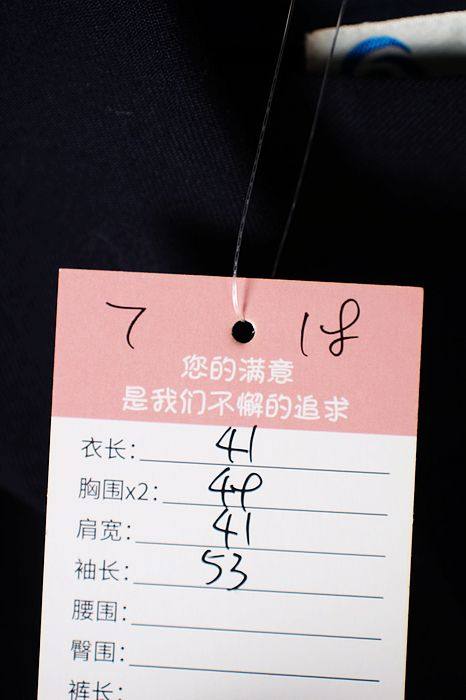 7 18
您的满意
是我们不懈的追求
衣长: 41
胸围x2: 49
肩宽: 41
袖长: 53
腰围:
臀围:
裤长: